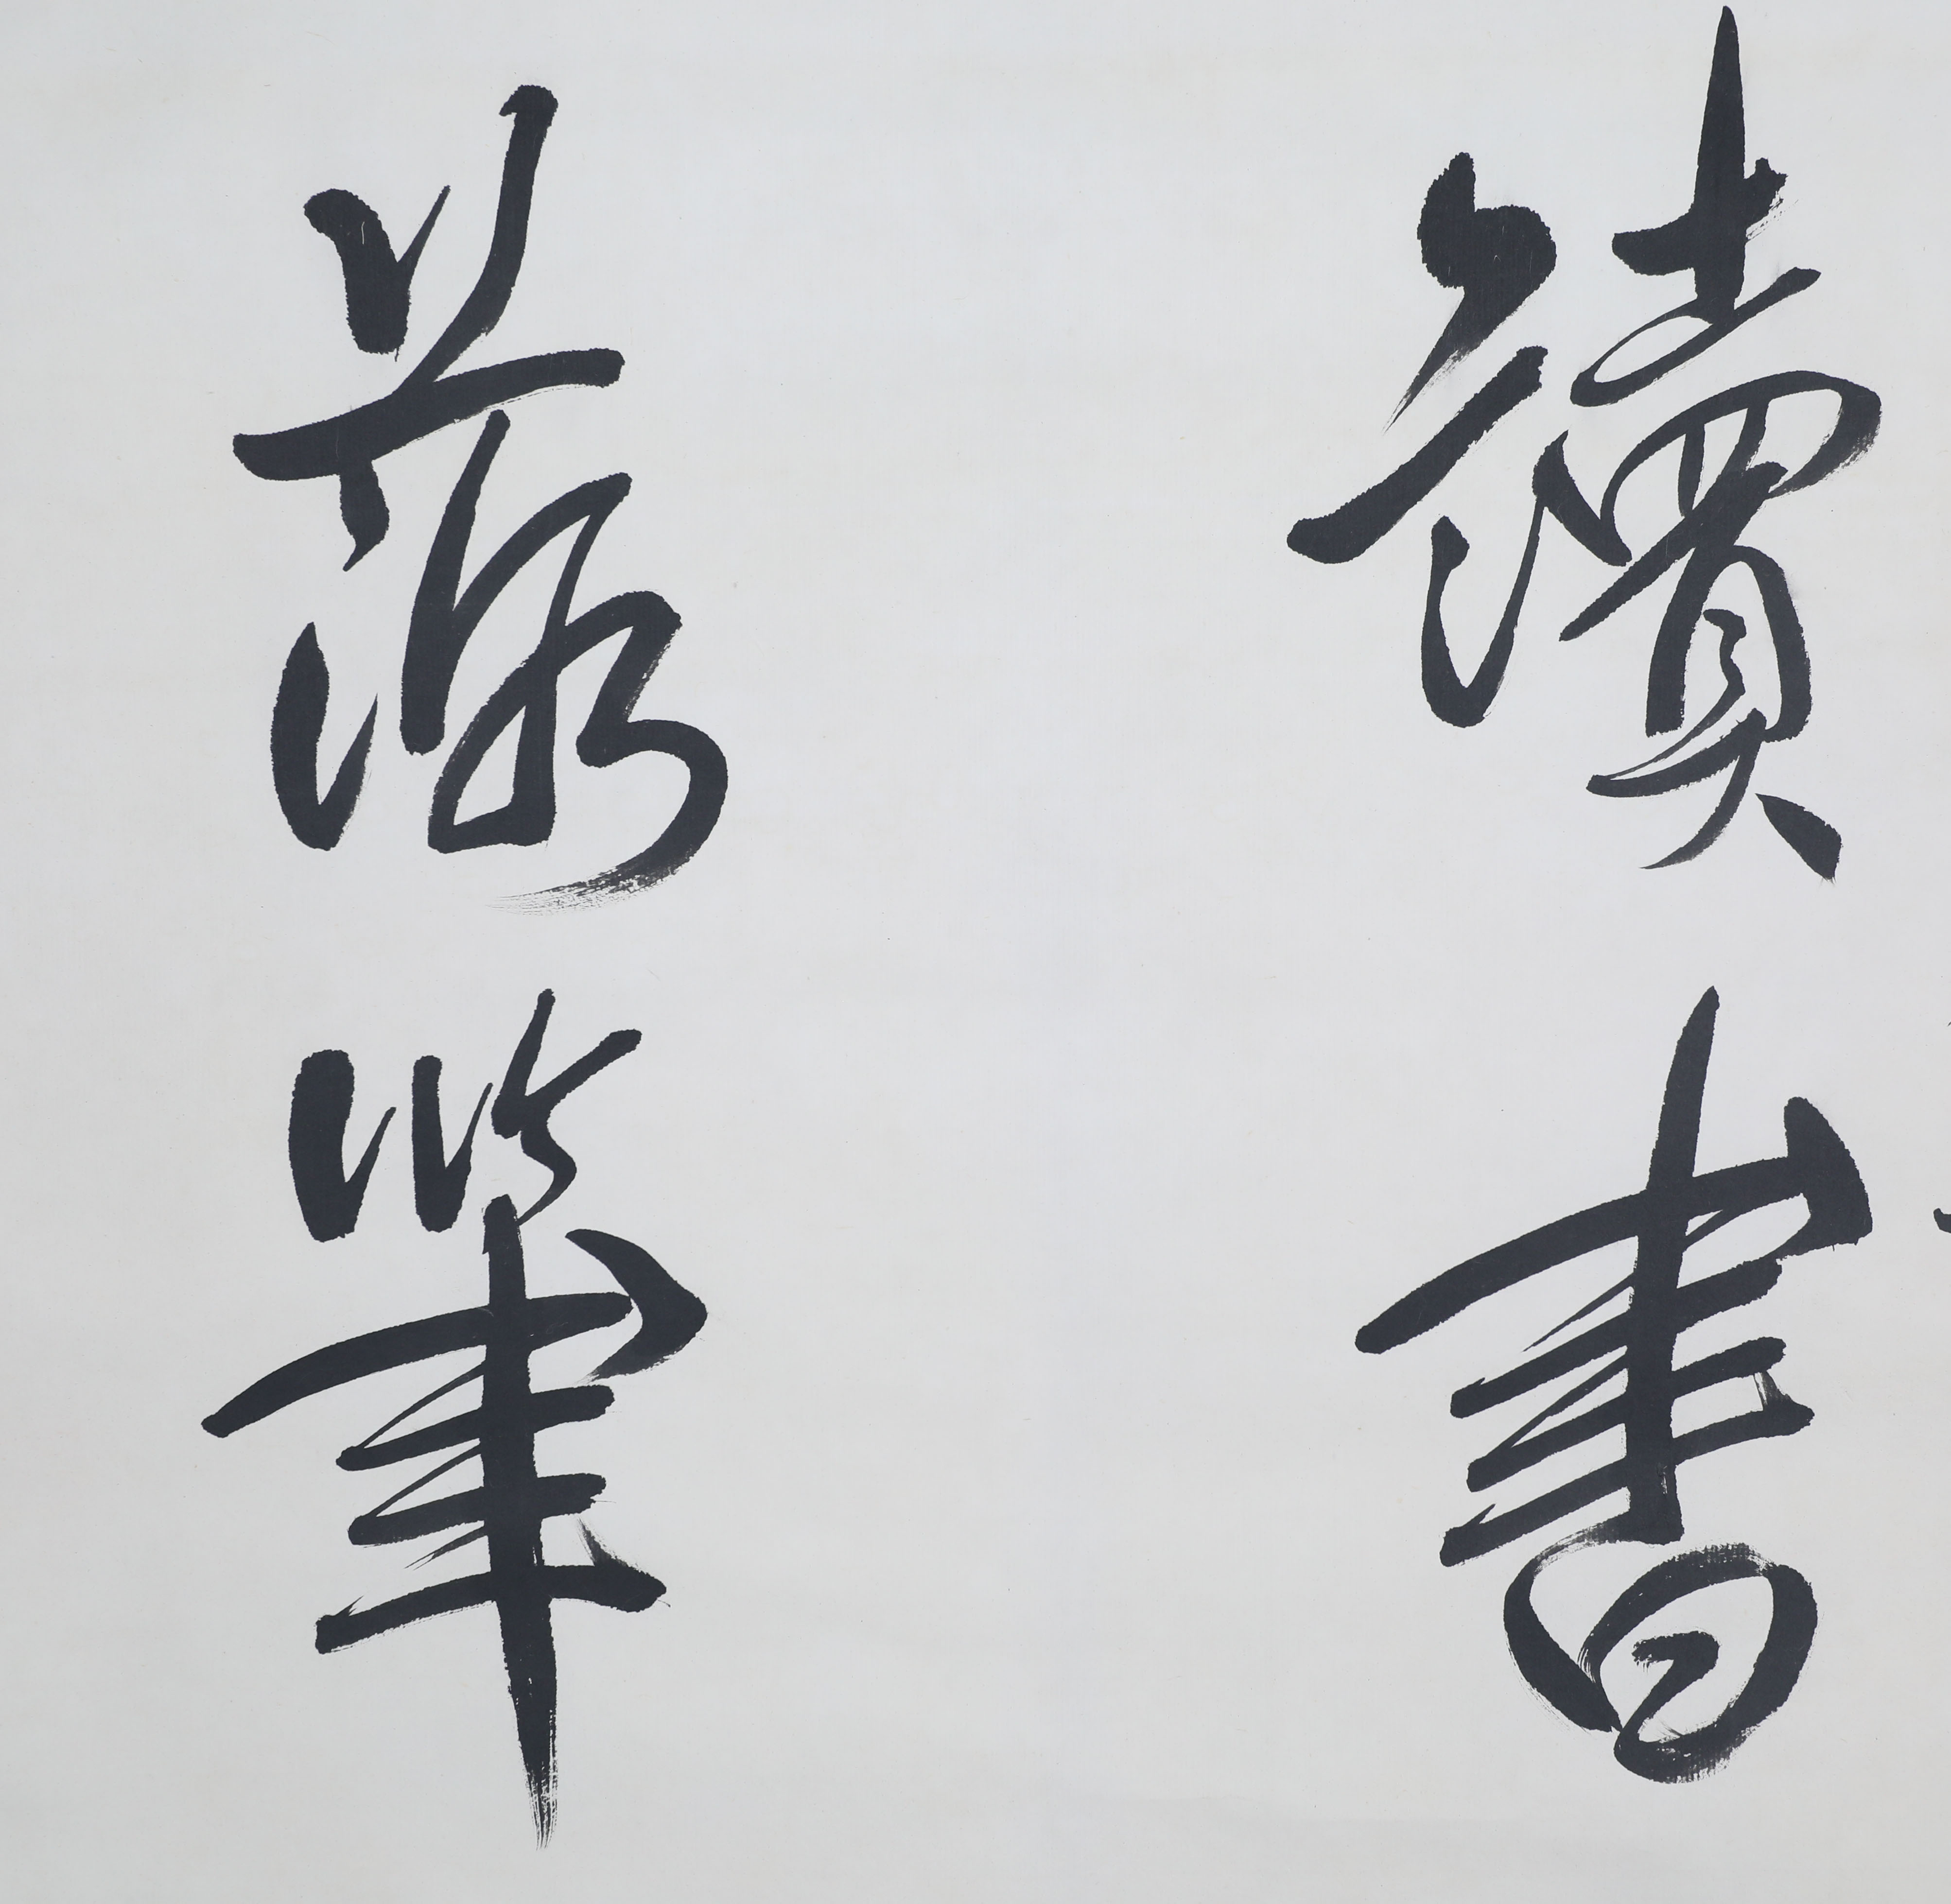 讀書
落筆